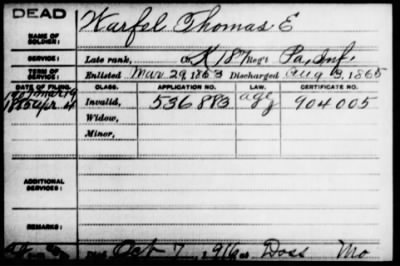 DEAD
NAME OF SOLDIER: Warfel Thomas E
SERVICE: Late rank, Co. K 187 Reg't Pa. Inf.
TERM OF SERVICE: Enlisted Mar 29, 1863 Discharged Aug 3, 1865
DATE OF FILING. CLASS. APPLICATION NO. LAW. CERTIFICATE NO.
Invalid, 536883 age 904005
Widow,
Minor,
ADDITIONAL SERVICES:
REMARKS:
Died Oct 7, 1916 at Doss Mo